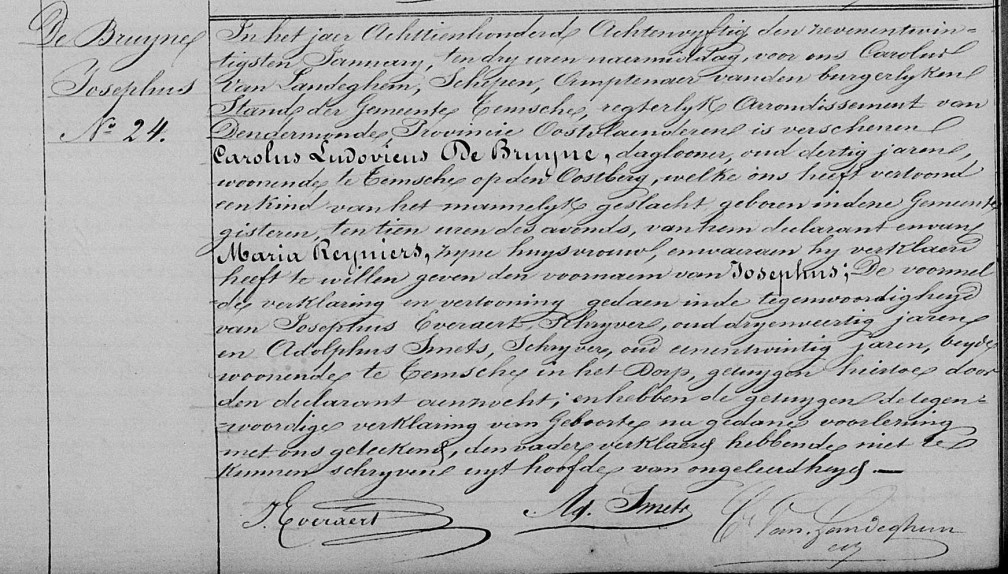 De Bruyne
Josephus
No 24.
In het jaer Achttienhonderd Achtenvyftig den zevenentwin-
tigsten January, ten dry uren naermiddag, voor ons Carolus
Van Landeghem, Schepen, Amptenaer van den burgerlyken
Stand der Gemeente Temsche, regterlyk Arrondissement van
Dendermonde, Provincie Oostvlaenderen is verschenen
Carolus Ludovicus De Bruyne, daglooner, oud dertig jaren,
woonende te Temsche op den Oostberg, welke ons heeft vertoond
een kind van het mannelyk geslacht geboren in dene Gemeente
gisteren, ten tien uren des avonds, van hem declarant en van
Maria Reyniers, zyne huysvrouw, en waeraen hy verklaerd
heeft te willen geven den voornaem van Josephus; De voormel-
de verklaring en vertooning gedaen in de tegenwoordigheyd
van Josephus Everaert, Schryver, oud dryenveertig jaren
en Adolphus Smets, Schryver, oud eenentwintig jaren, beyde
woonende te Temsche in het Dorp, getuygen hiertoe door
den declarant aenzocht; en hebben de getuygen de tegen-
-woordige verklaring van Geboorte na gedane voorlezing
met ons geteekend, den vader verklaerd hebbende niet te
kunnen schryven uyt hoofde van ongeleerdheyd. —
J. Everaert Ad. Smets C. Van Landeghem